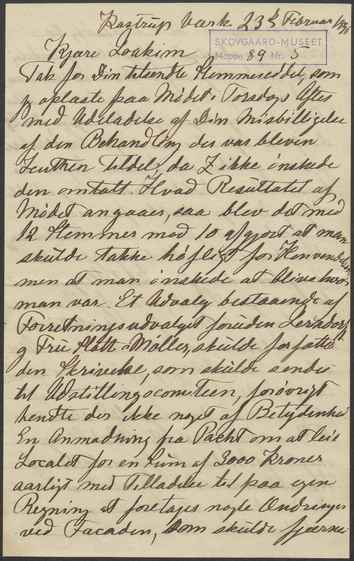 Kastrup Værk. 23d Februar 1891
SKOVGAARD-MUSEET
Mappe 89 Nr. 5
Kjære Joakim
Tak for Din tilsendte Stemmeseddel, som
jeg oplæste paa Mødet i Torsdags Aftes
med Udeladelse af Din Misbilligelse
af den Behandling der var bleven
Zeuthen tildel, da Z ikke ønskede
den omtalt. Hvad Resultatet af
Mødet angaaer, saa blev det med
12 Stemmer mod 10 afgjort at man
skulde takke høfligst for Henvendelsen
men at man ønskede at blive hvor
man var. Et Udvalg bestaaende af
Forretningsudvalget foruden
og Friis Møller, skulde forfatte
den Skrivelse, som skulde sendes
til Udstillingscomiteen, forøvrigt
hendte der ikke noget af Betydenhed
En Anmodning fra Pacht om at leie
Localet for en Sum af 3000 Kroner
aarligt med Tilladelse til paa egen
Regning at foretage nogle Ændringer
ved Facaden, som skulde fjernes